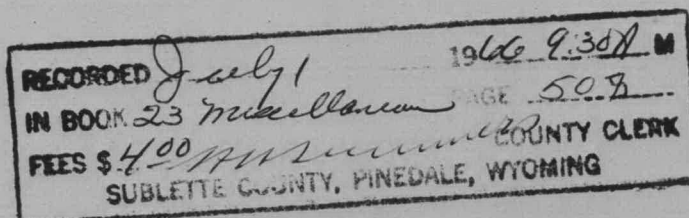 RECORDED July 1 1966 9:30 A M
IN BOOK 23 Miscellaneous PAGE 508
FEES $ 4.00 COUNTY CLERK
SUBLETTE COUNTY, PINEDALE, WYOMING